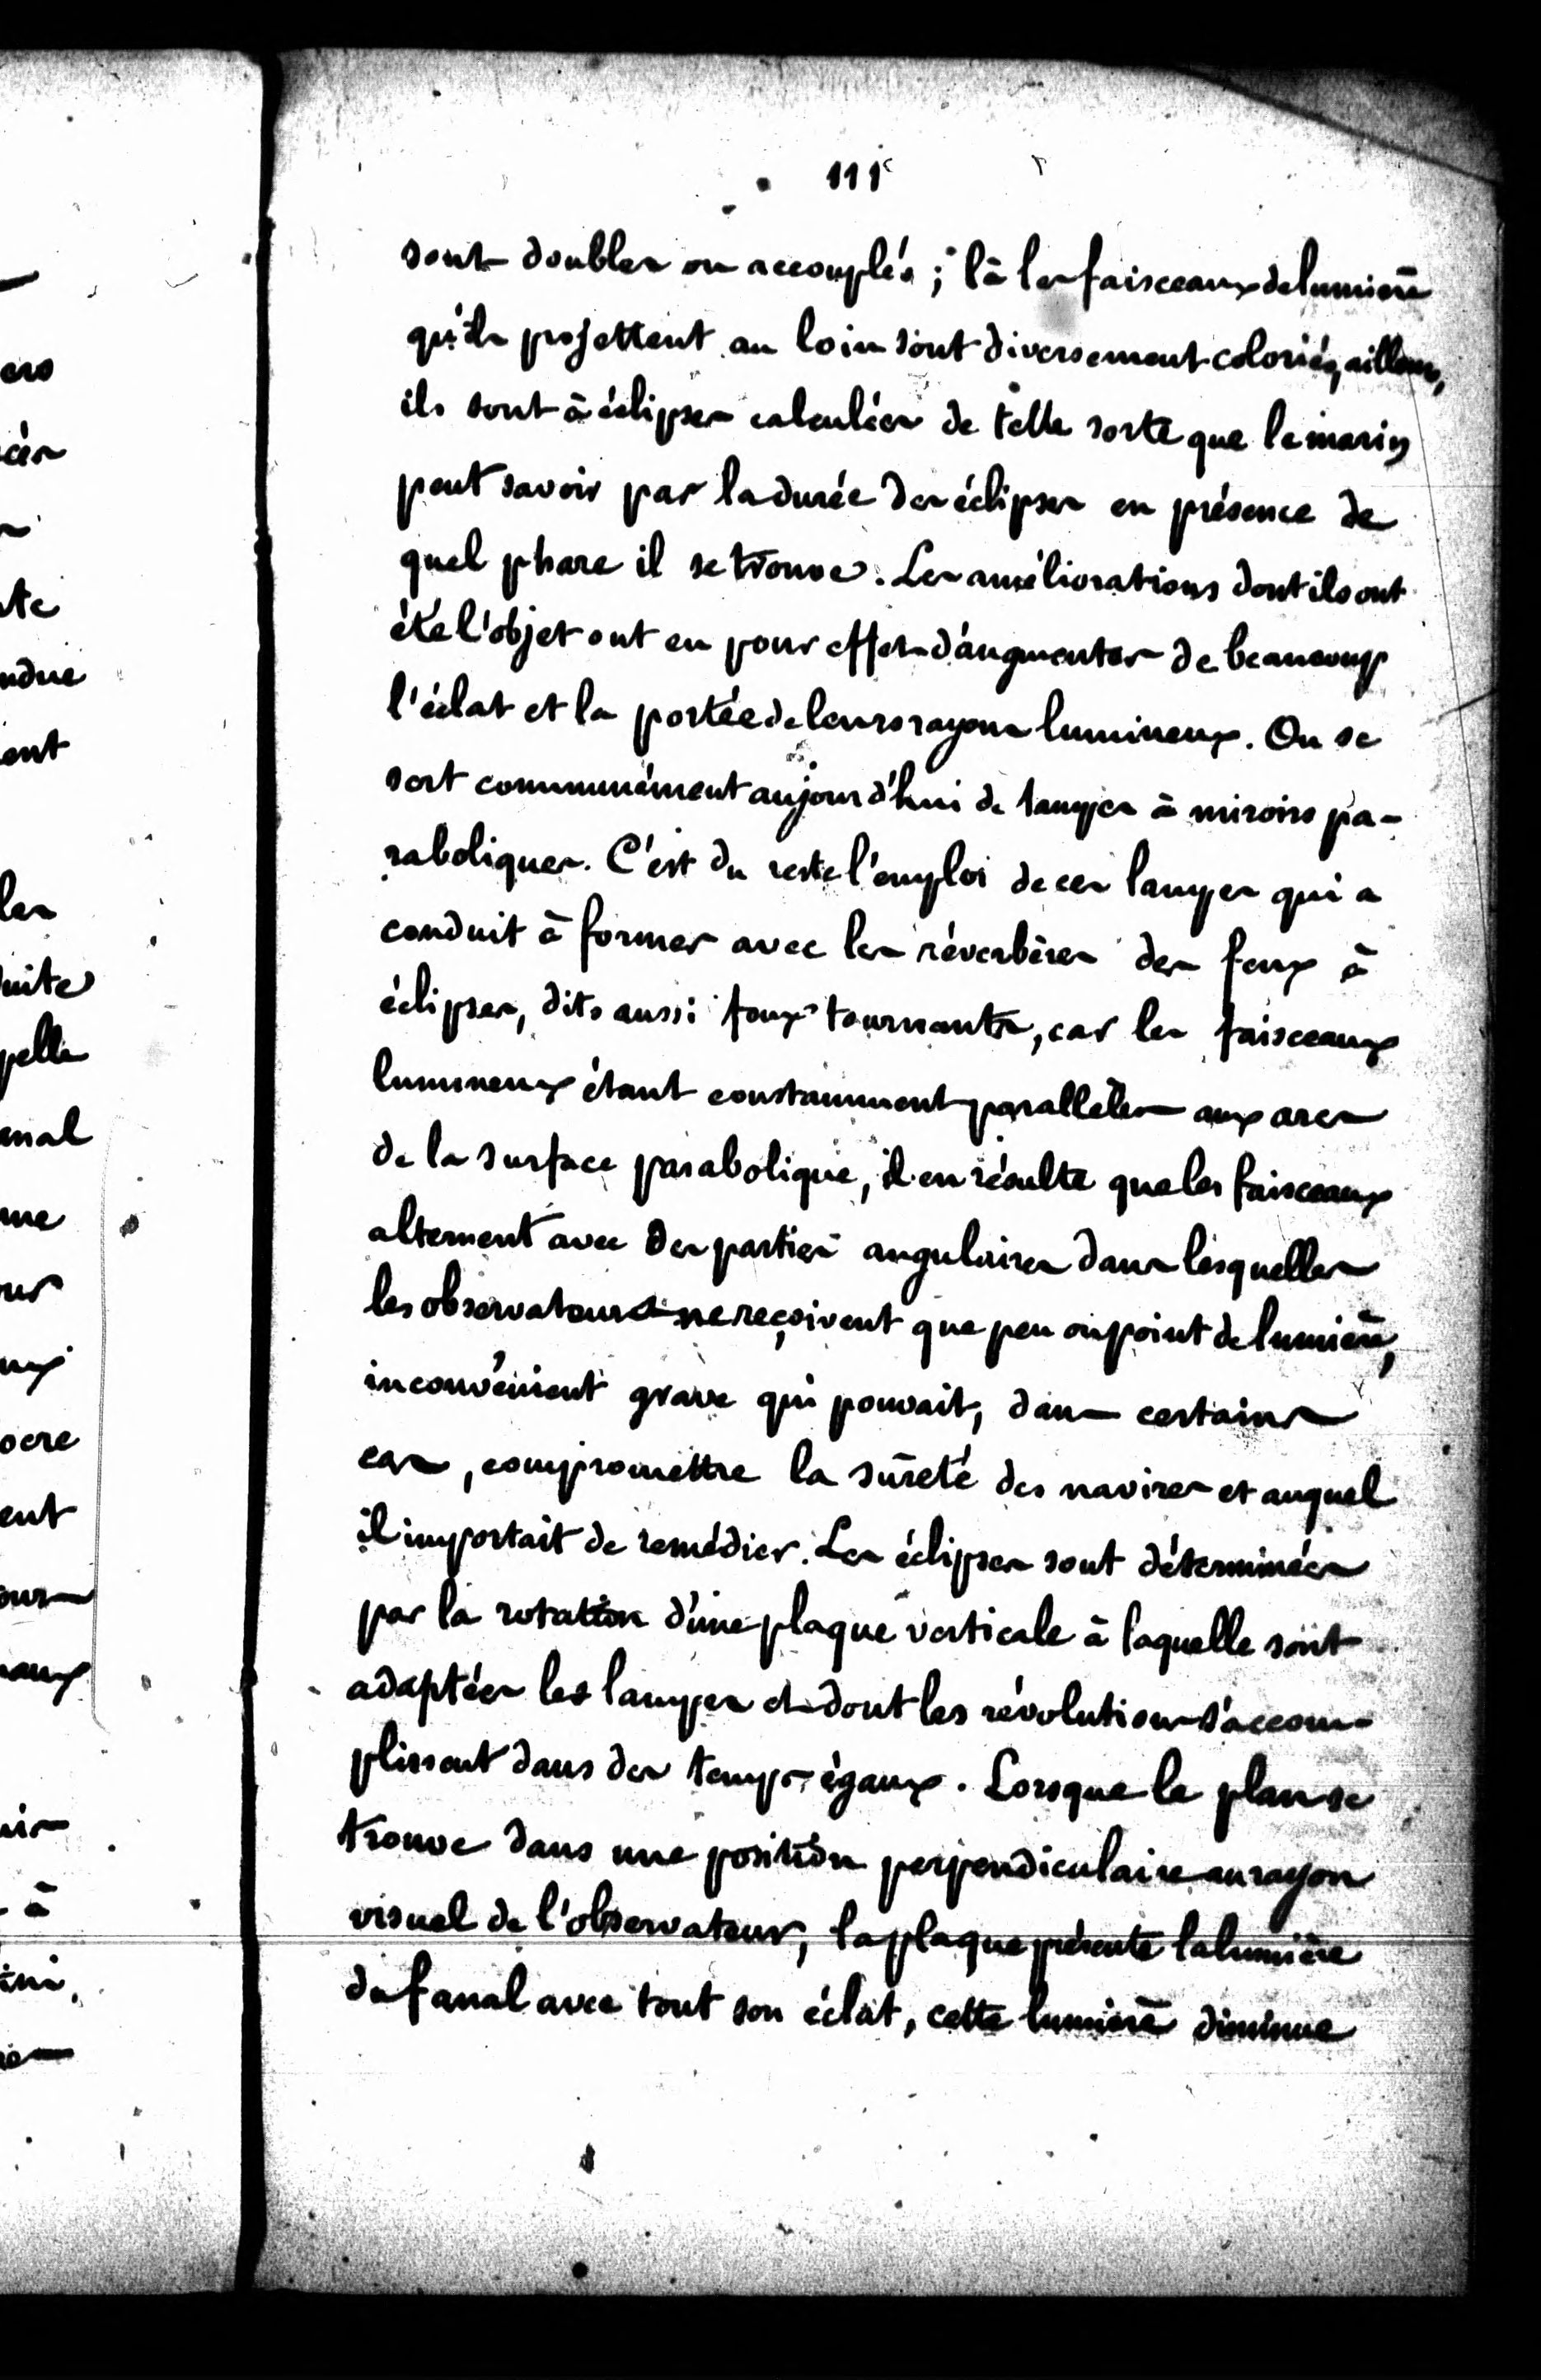 111
sont doubles ou accouplés ; là les faisceaux de lumière
qu'ils projettent au loin sont diversement coloriés, ailleurs,
ils sont à éclipses calculées de telle sorte que le marin
peut savoir par la durée des éclipses en présence de
quel phare il se trouve. Les améliorations dont ils ont
été l'objet ont eu pour effet d'augmenter de beaucoup
l'éclat et la portée de leurs rayons lumineux. On se
sert communément aujourd'hui de lampes à miroirs pa-
raboliques. C'est du reste l'emploi de ces lampes qui a
conduit à former avec les réverbères des feux à
éclipses, dits aussi feux tournants, car les faisceaux
lumineux étant constamment parallèles aux axes
de la surface parabolique, il en résulte que les faisceaux
alternent avec des parties angulaires dans lesquelles
les observateurs ne reçoivent que peu ou point de lumière,
inconvénient grave qui pouvait, dans certains
cas, compromettre la sûreté des navires et auquel
il importait de remédier. Les éclipses sont déterminées
par la rotation d'une plaque verticale à laquelle sont
adaptées les lampes et dont les révolutions s'accom-
plissent dans des temps égaux. Lorsque le plan se
trouve dans une position perpendiculaire au rayon
visuel de l'observateur, la plaque présente la lumière
du fanal avec tout son éclat, cette lumière diminue